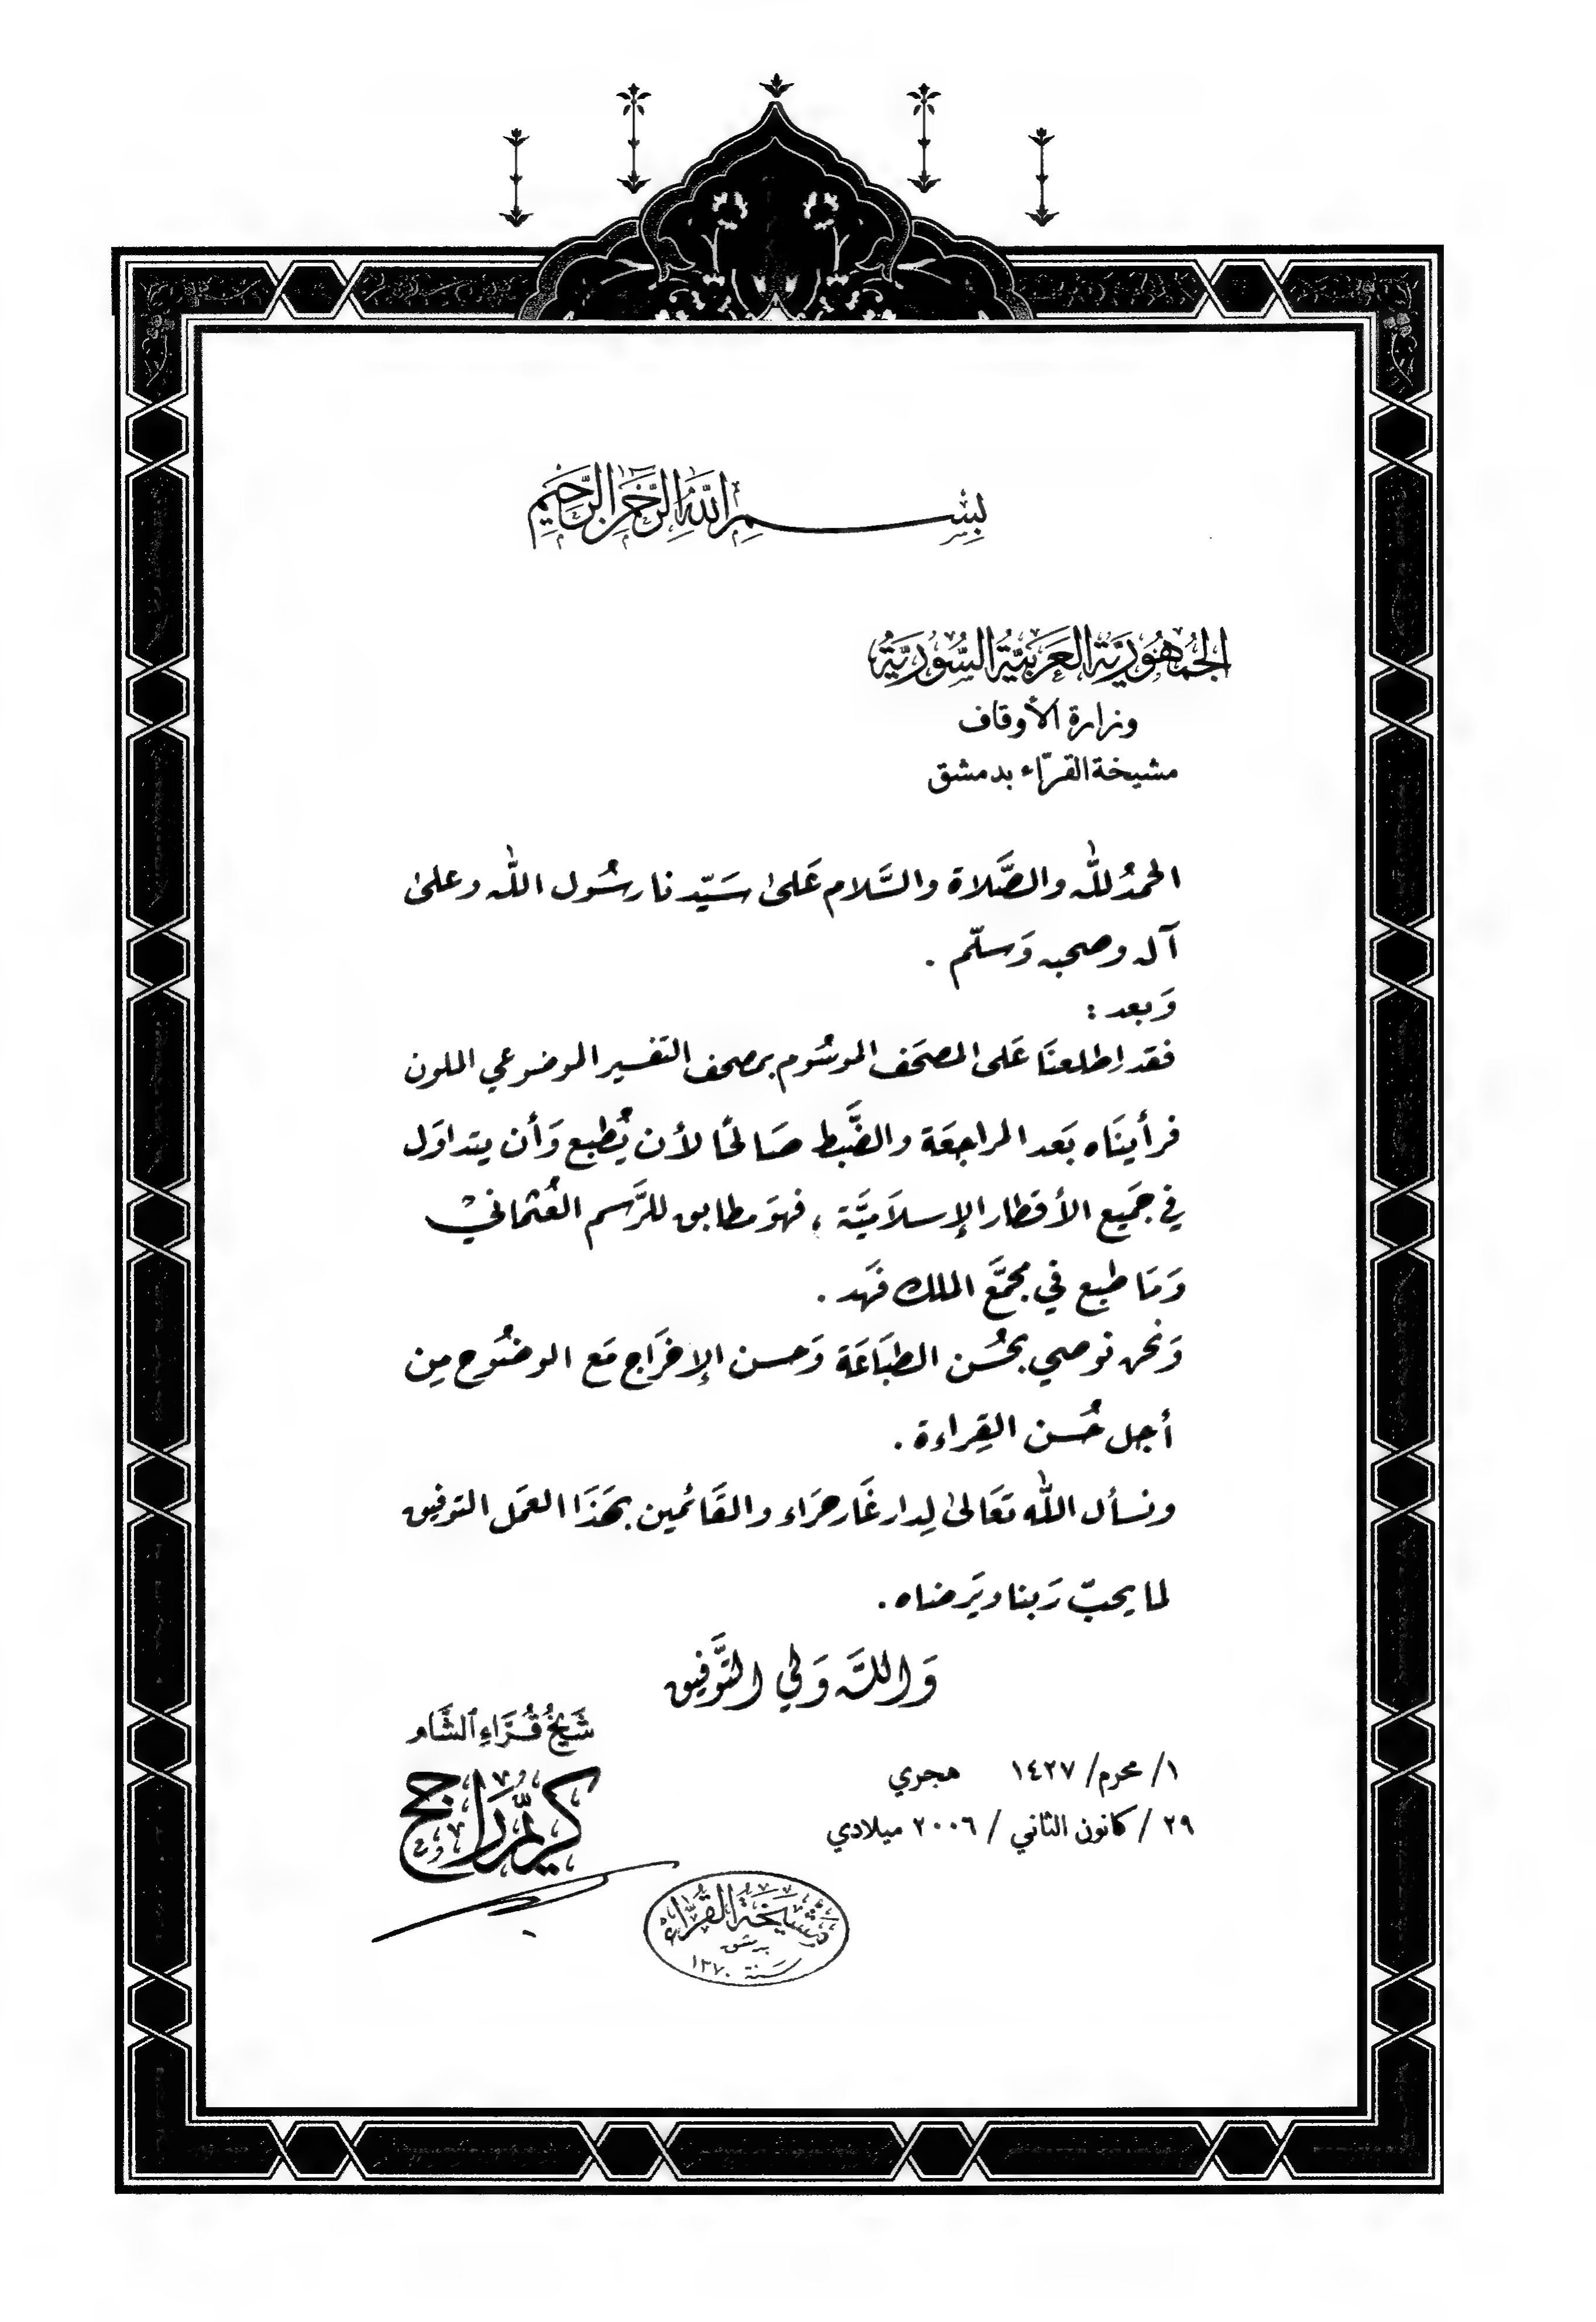 بِسْمِ اللَّهِ الرَّحْمَنِ الرَّحِيمِ
الجُمْهُورِيَّة العَرَبيَّة السُّورِيَّةُ
وزارة الأوقاف
مشيخة القرّاء بدمشق
الحمدُ لله والصَّلاة والسَّلام عَلىٰ سَيّدنا رسُول الله وعلىٰ
آله وصحبه وَسلّم .
وَبعد :
فقد اِطلعنَا عَلى المصحَف الموسُوم بمصحف التفسير الموضوعي الملون
فرأينَاه بَعد المراجعَة والضَّبط صَالحًا لأن يُطبع وَأن يتداوَل
في جَميع الأقطار الإسلاَميَّة ، فهوَ مطابق للرَّسم العُثماني
وَمَا طبع في مجمَّع الملك فَهد .
وَنحن نوصي بحُسن الطبَاعَة وَحسن الإخرَاج مَع الوضُوح مِن
أجل حُسن القِراءة .
ونسأل الله تعَالىٰ لِدار غَار حرَاء والقَائمين بهَذَا العمَل التوفيق
لما يحبّ رَبنا ويَرضاه .
وَاللَّه وَلي التَّوفيق
شَيْخُ قُرَّاءِ ٱلشَّام
١/ محرم/ ١٤٢٧ هجري
كريّم رَاجح
٢٩ / كانون الثاني / ٢٠٠٦ ميلادي
مَشْيَخَةُ القُرَّاءِ
بدمشق
سَنة ١٣٧٠